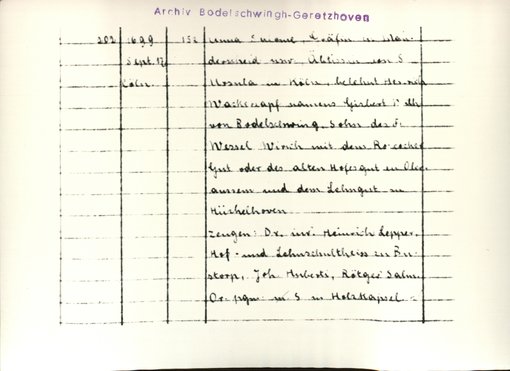 Archiv Bodelschwingh-Geretzhoven
202 1699 152 Anna Salome, Gräfin u. Man-
Sept. 12 derscheid usw., Äbtissin von S
Köln Ursula in Köln, belehnt Heinrich
Wachszapf namens Gisbert
von Bodelschwing, Sohn des Fr.
Wessel Wirich mit dem
Gut oder des alten Hofesgut in Ober
aussem und dem Lehngut zu
Hüchelhoven
Zeugen: Dr. iur. Heinrich Lepper,
Hof- und Lehnschultheiss zu
Joh. Huberts, Rötger
Or. pgm. m. S in Holzkapsel